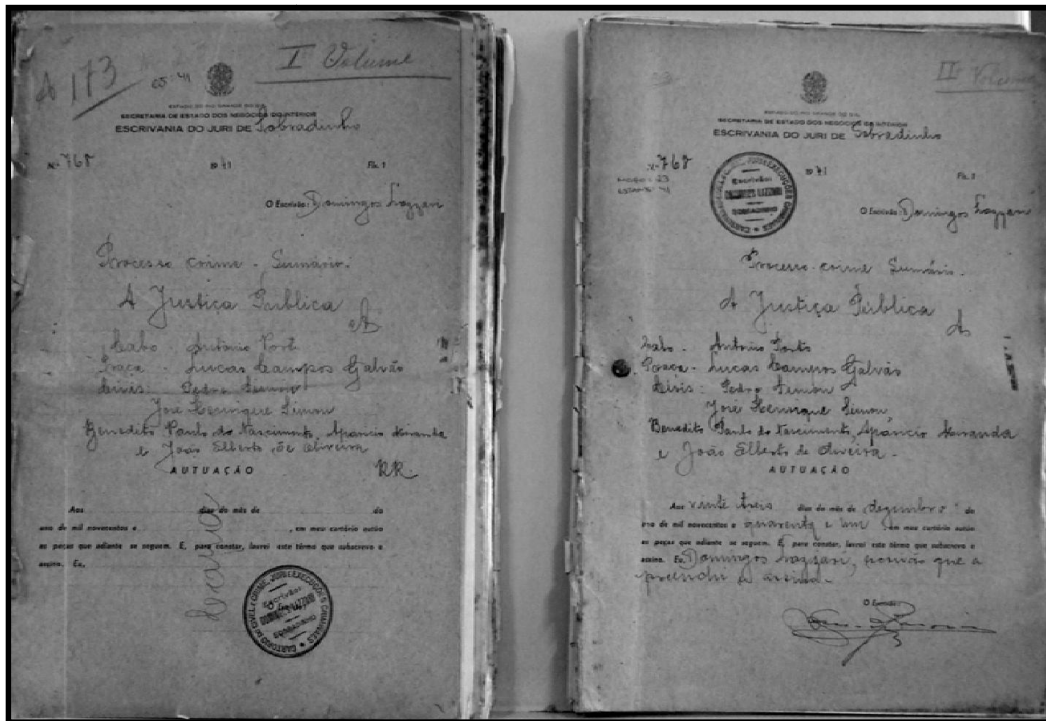 A 173
05-41
I Volume
ESTADO DO RIO GRANDE DO SUL
SECRETARIA DE ESTADO DOS NEGÓCIOS DO INTERIOR
ESCRIVANIA DO JURI DE Sobradinho
N.º 768 1941 Fls. 1
O Escrivão: Domingos Lazzari
Processo crime - Sumário.
A Justiça Pública A
Cabo - Antônio Porto
Praça - Lucas Campos Galvão
Civis: Pedro Simon
José Henrique Simon
Benedito Paulo do Nascimento, Aparício Miranda
e João Elberto de Oliveira RR.
AUTUAÇÃO
Aos dias do mês de do
ano de mil novecentos e , em meu cartório autúo
as peças que adiante se seguem. E, para constar, lavrei este têrmo que subscrevo e
assino. Eu,
CARTORIO DO CIVEL E CRIME, JURI E EXECUÇÕES CRIMINAIS
Escrivão:
DOMINGOS LAZZARI
SOBRADINHO
II Volume
ESTADO DO RIO GRANDE DO SUL
SECRETARIA DE ESTADO DOS NEGÓCIOS DO INTERIOR
ESCRIVANIA DO JURI DE Sobradinho
N.º 768 1941 Fls. 1
ESTANTE: 41
CARTORIO DO CIVEL E CRIME, JURI E EXECUÇÕES CRIMINAIS
Escrivão:
DOMINGOS LAZZARI
SOBRADINHO
O Escrivão: Domingos Lazzari
Processo-crime Sumário.
A Justiça Pública A
Cabo - Antonio Porto
Praça - Lucas Campos Galvão
Civis: Pedro Simon
José Henrique Simon
Benedito Paulo do Nascimento, Aparício Miranda
e João Elberto de Oliveira.
AUTUAÇÃO
Aos vinte três dias do mês de dezembro do
ano de mil novecentos e quarenta e um em meu cartório autúo
as peças que adiante se seguem. E, para constar, lavrei este têrmo que subscrevo e
assino. Eu, Domingos Lazzari, escrivão que a
O Escrivão: